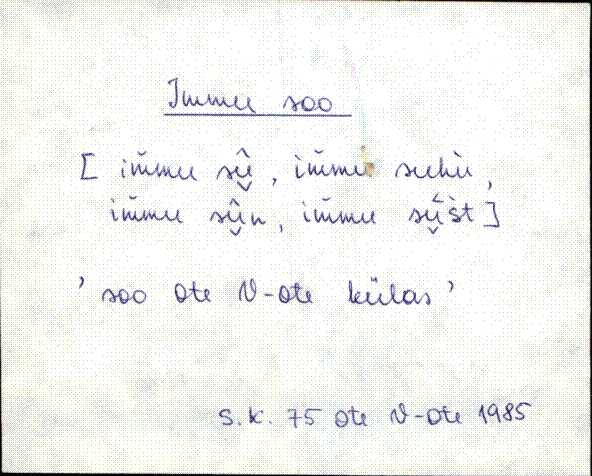 Immu soo
[ im̆mu sṷ̂, im̆mu suhù,
im̆mu sṷ̂n, im̆mu sṷ́št ]
' soo Ote V-Ote külas '
S.K. 75 Ote V-Ote 1985